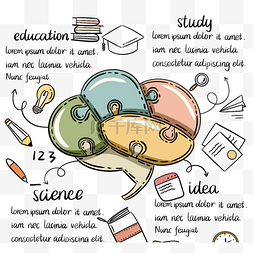 education
lorem ipsum dolor it amet.
iam nec lacinia vehida.
Nunc feugiat
study
lorem ipsum dolor it amet.
iam nec lacinia vehida.
consectetur adipiscing elit
123
science
lorem ipsum dolor it amet
iam nec lacinia vehida.
Nunc feugiat
idea
lorem ipsum dolor it amet.
iam nec lacinia vehida.
Nunc feugiat